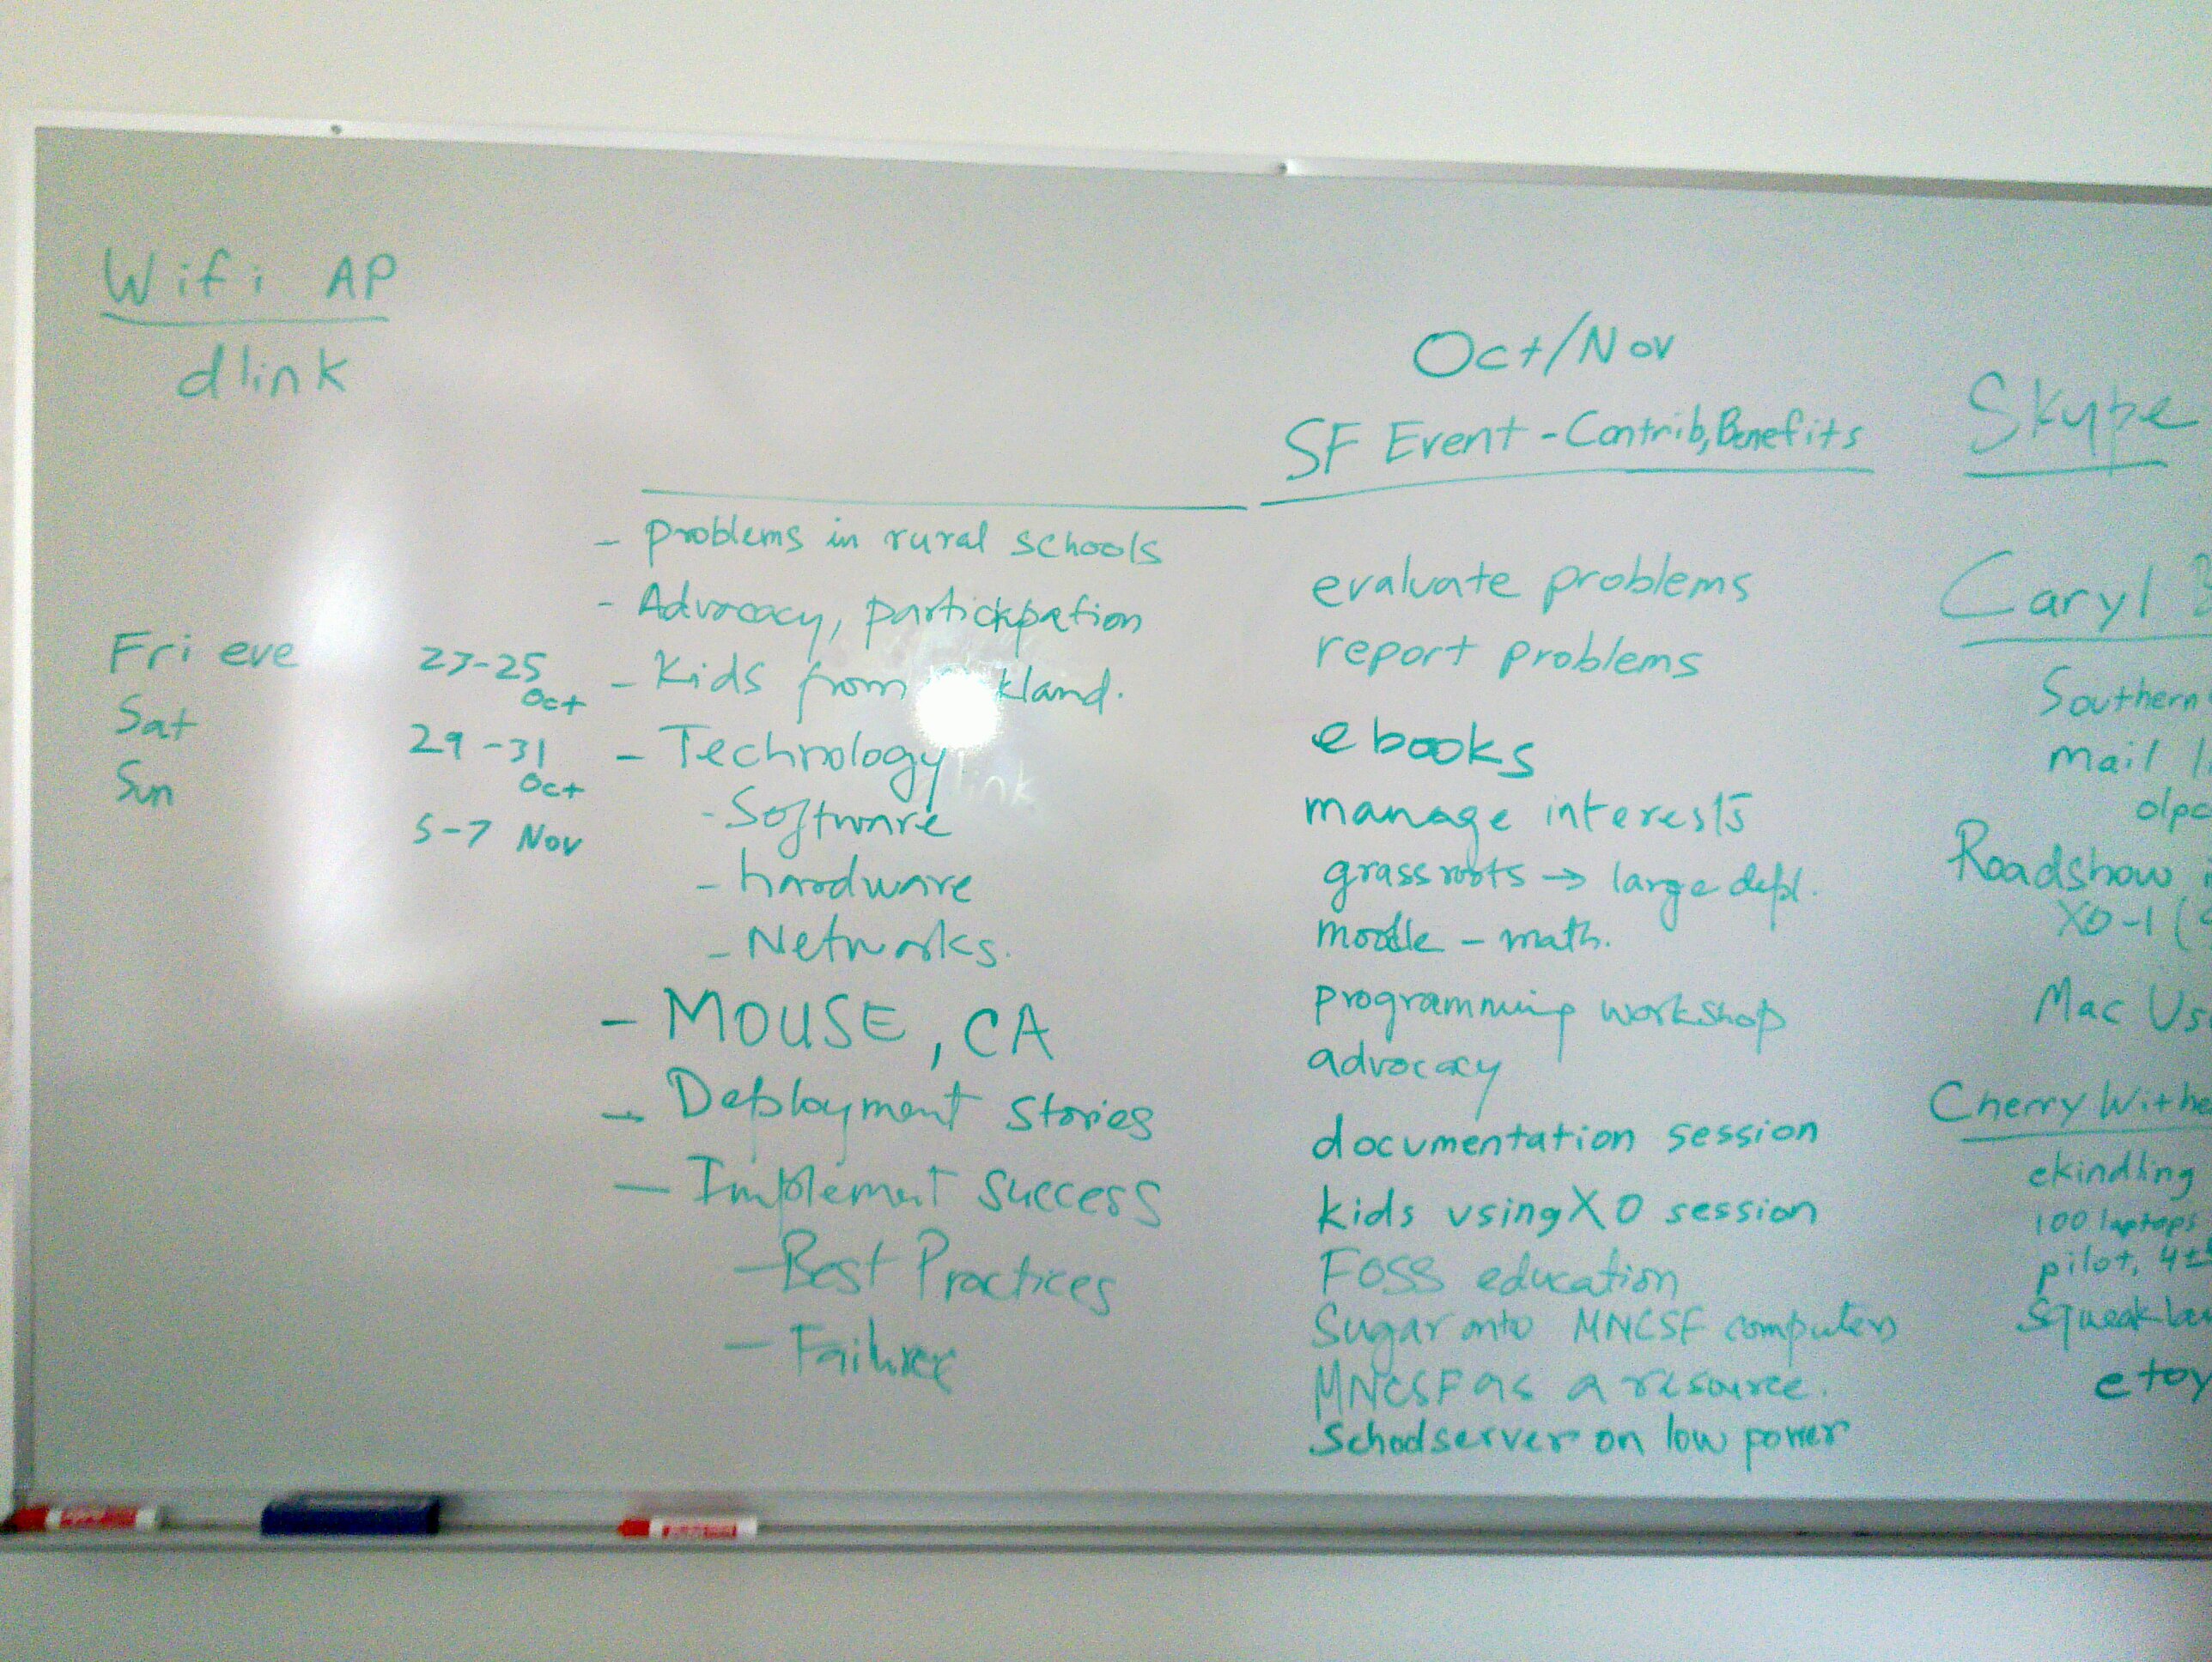 Wifi AP
dlink
Fri eve
Sat
Sun
23-25
Oct
29-31
Oct
5-7 Nov
- problems in rural schools
- Advocacy, partickpation
- Kids from kland.
- Technology
- Software
- hardware
- Networks.
- MOUSE, CA
- Deployment stories
- Implement success
- Best Practices
- Failure
Oct/Nov
SF Event - Contrib, Benefits
evaluate problems
report problems
ebooks
manage interests
grassroots → large depl.
moodle - math.
programming workshop
advocacy
documentation session
kids using XO session
FOSS education
Sugar onto MNCSF computers
MNCSF as a resource.
Schoolserver on low power
Skype
Caryl B
Southern
mail li
olpc
Roadshow
XO-1 (
Mac Us
Cherry Withe
ekindling
100 laptops
pilot, 4th
Squeakla
etoy